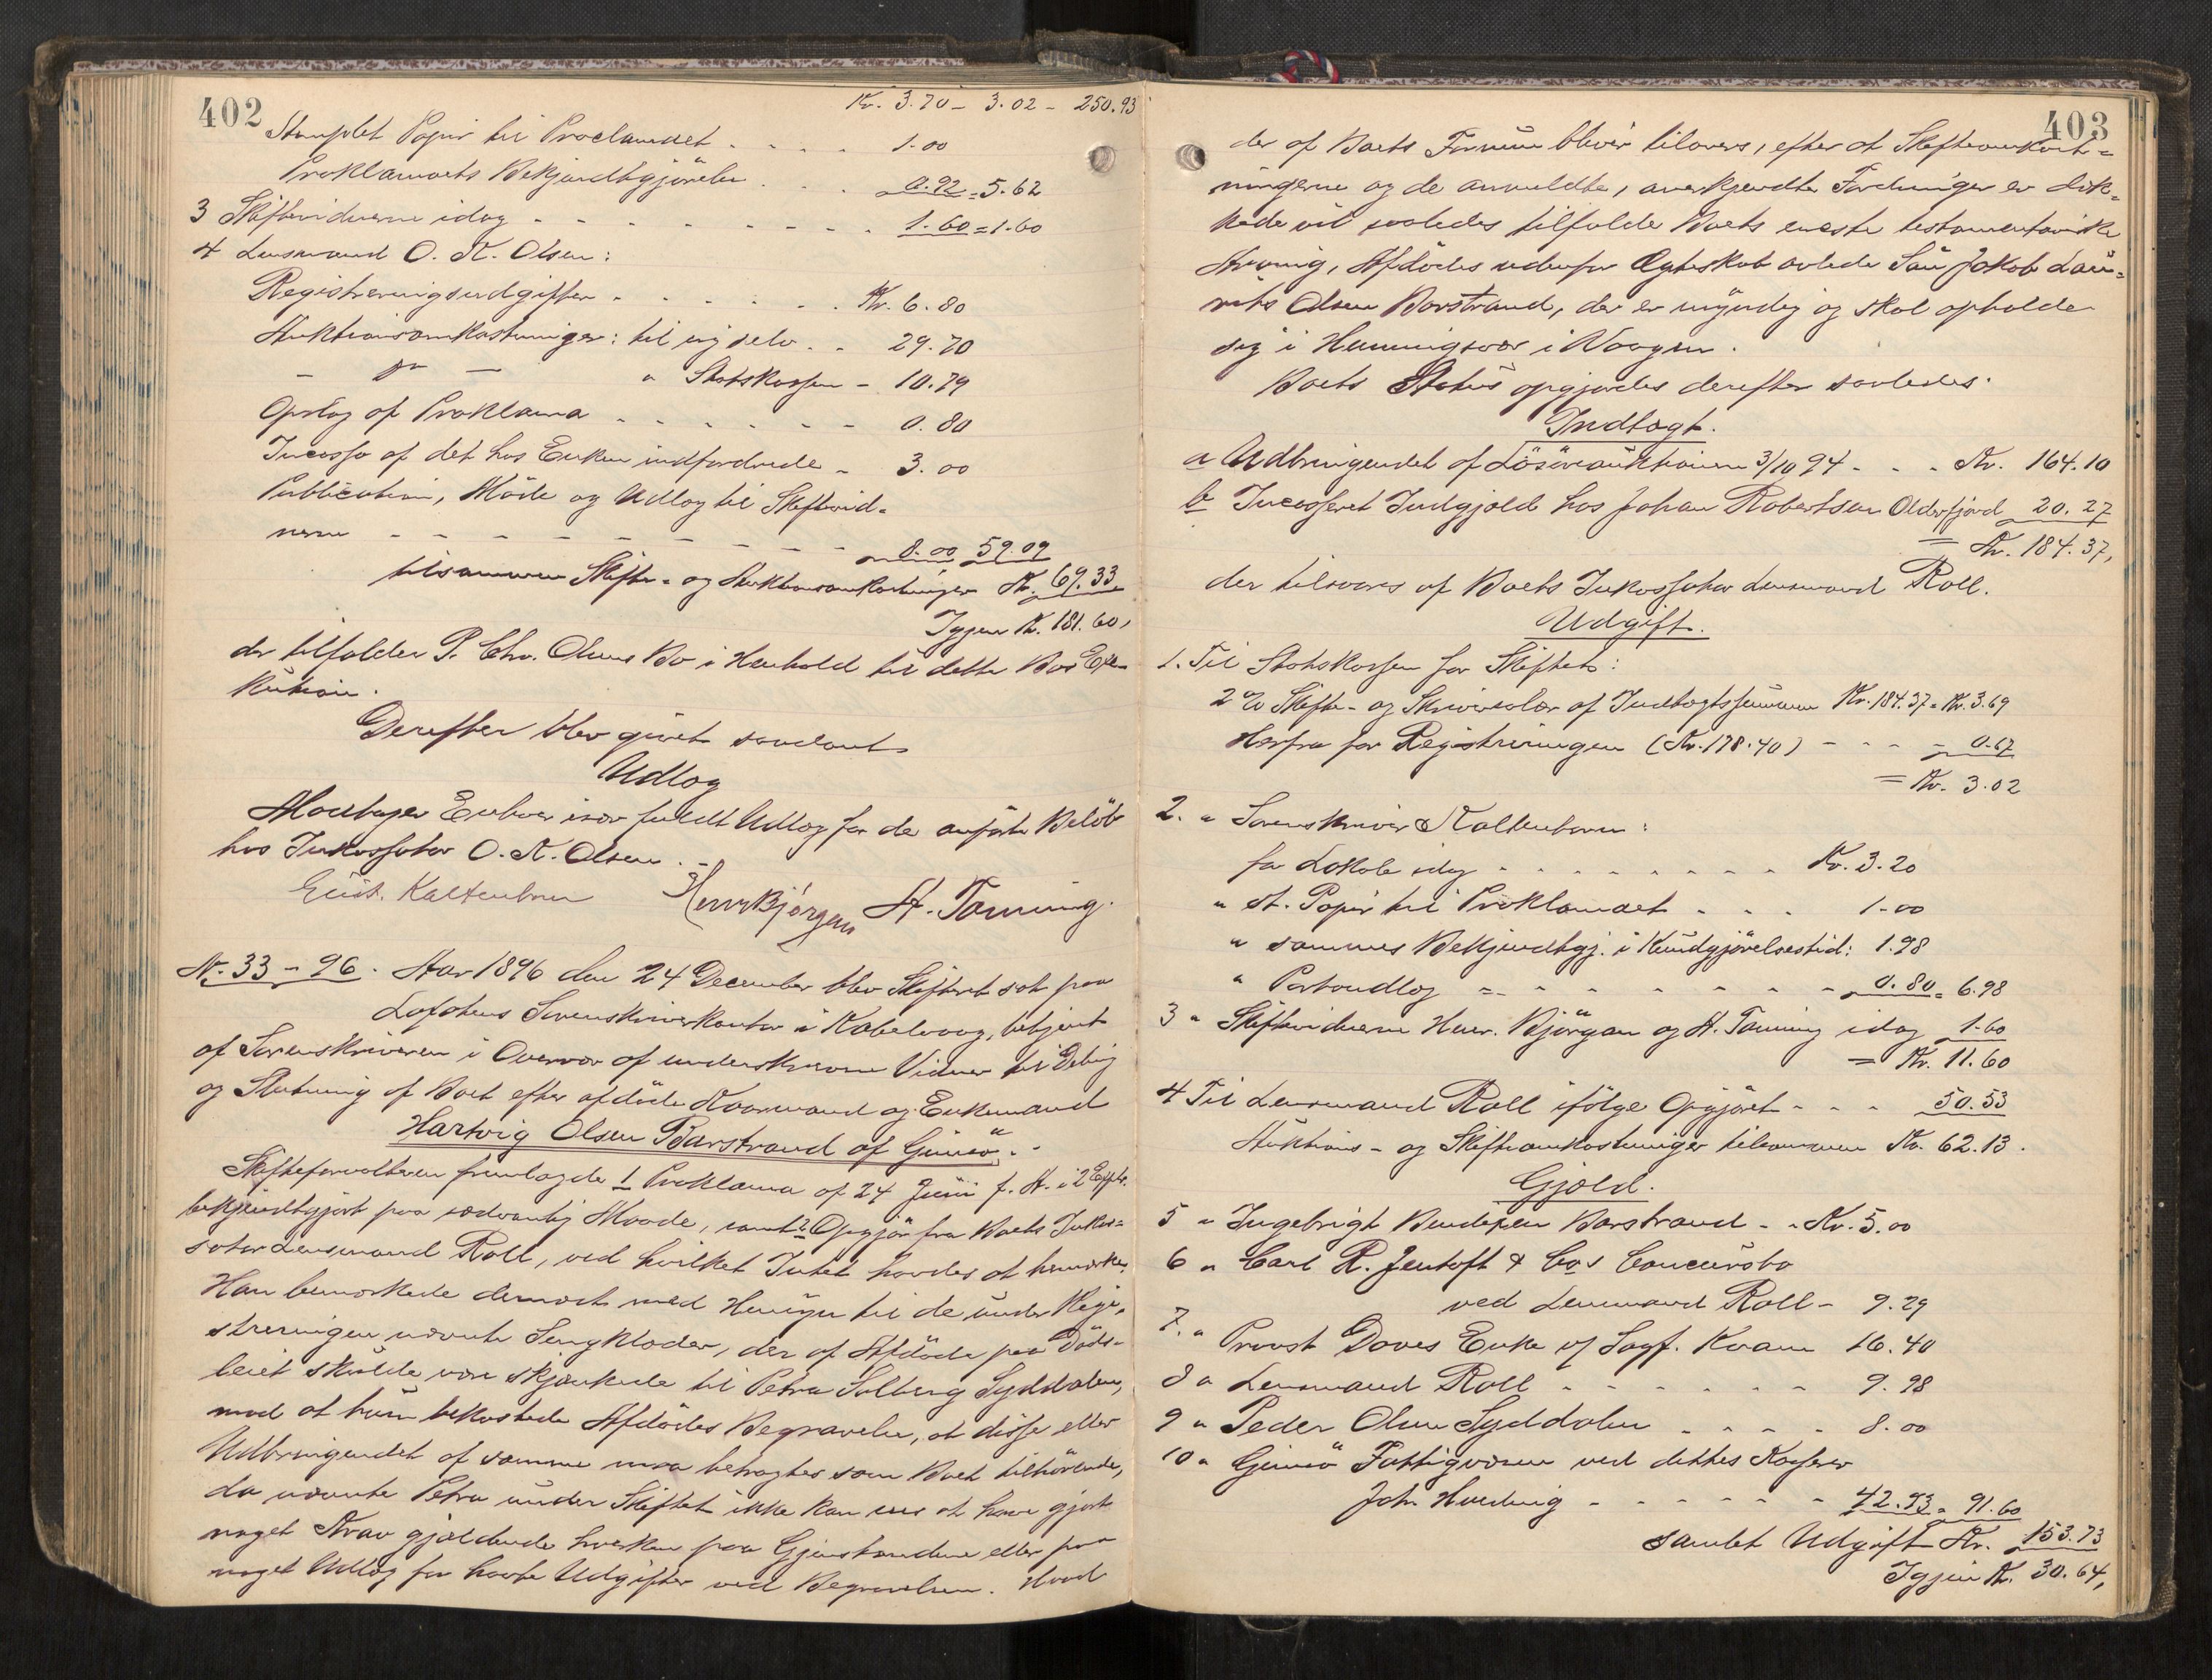 402
Kr. 3.70 - 3.02 - 250.93
Stemplet Papir til Proclamaet - - - - 1.00
Proklamaets Bekjendtgjörelse - - - 0.92 = 5.62
3 Skiftevidnerne idag - - - - - - - - 1.60 = 1.60
4 Lensmand O. K. Olsen:
Registreringsudgifter - - - - - - Kr. 6.80
Auktionsomkostninger: til sig selv - - 29.70
- Do - " Statskassen - 10.79
Opslag af Proklama - - - - - - 0.80
Incasso af det hos Enken indfordrede - 3.00
Publication, Möde og Udlæg til Skiftevid-
nerne - - - - - - - - - 8.00 59.09
tilsammen Skifte- og Auktionsomkostninger Kr. 69.33
Igjen Kr. 181.60,
der tilfalder P. Chr. Olsens Bo i Henhold til dette Bos Exe-
kution.
Derefter blev givet saadant
Udlæg
Modtager Enhver især fuldt Udlæg for de anførte Beløb
hos Inkassator O. K. Olsen. -
Eust. Kaltenborn Henr Bjørgan A. Tønning.
N. 33 - 96. Aar 1896 den 24 December blev Skifteret sat paa
Lofotens Sorenskriverkontor i Kabelvaag, betjent
af Sorenskriveren i Overvær af underskrevne Vidner til Behdlg
og Slutning af Boet efter afdöde Kaarmand og Enkemand
Hartvig Olsen Barstrand af Gimsö. -
Skifteforvalteren fremlagde 1 Proklama af 24 Juni f. A. i 2 Expl.
bekjendtgjort paa sædvanlig Maade, samt 2 Opgjör fra Boets Inkas-
sator Lensmand Roll, ved hvilket Intet havdes at bemærke.
Han bemærkede dernæst med Hensyn til de under Regi-
streringen nævnte Sengklæder, der af Afdöde paa Döds-
leiet skulde være skjænkede til Petra Solberg Syddalen,
mod at hun bekostede Afdödes Begravelse, at disse eller
Udbringendet af samme maa betragtes som Boet tilhörende,
da nævnte Petra under Skiftet ikke kan sees at have gjort
noget Krav gjældende hverken paa Gjenstandene eller paa
noget Udlæg for havte Udgifter ved Begravelsen. Hvad
403
der af Boets Formue bliver tilovers, efter at Skifteomkost-
ningerne og de anmeldte, anerkjendte Fordringer er dæk-
kede vil saaledes tilfalde Boets eneste testamentariske
Arving, Afdödes udenfor Ægteskab avlede Sön Jakob Lau-
rits Olsen Barstrand, der er myndig og skal opholde
sig i Henningsvær i Vaagen.
Boets Status opgjordes derefter saaledes:
Indtægt.
a Udbringendet af Lösöreauktionen 3/10 94 - - - Kr. 164.10
b Incasseret Indgjæld hos Johan Robertsen Olderfjord 20.27
= Kr. 184.37,
der tilsvares af Boets Inkassator Lensmand Roll.
Udgift.
1. Til Statskassen for Skiftet:
2 % Skifte- og Skriversalær af Indtægtssummen Kr. 184.37 = Kr. 3.69
Herfra for Registreringen (Kr. 178.40) - - - - 0.67
= Kr. 3.02
2. " Sorenskriver Kaltenborn:
for Lokale idag - - - - - - - - Kr. 3.20
" st. Papir til Proklamaet - - - 1.00
" sammes Bekjendtgj. i Kundgjörelsestid: 1.98
" Portoudlæg - - - - - - - - 0.80 = 6.98
3 " Skiftevidnerne Henr. Björgan og A. Tønning idag 1.60
= Kr. 11.60
4 Til Lensmand Roll ifölge Opgjöret - - - 50.53
Auktions- og Skifteomkostninger tilsammen Kr. 62.13.
Gjæld.
5 " Ingebrigt Bendixen Barstrand - - Kr. 5.00
6 " Carl R. Jentoft & Cos Concursbo
ved Lensmand Roll - 9.29
7. " Provst Daves Enke v/ Sagf. Kvam 16.40
8 " Lensmand Roll - - - - - - 9.98
9 " Peder Olsen Syddalen - - - - 8.00
10 " Gimsö Fattigvæsen ved dettes Kasserer
Joh. Hveding - - - - - - 42.93 = 91.60
samlet Udgift Kr. 153.73
Igjen Kr. 30.64,